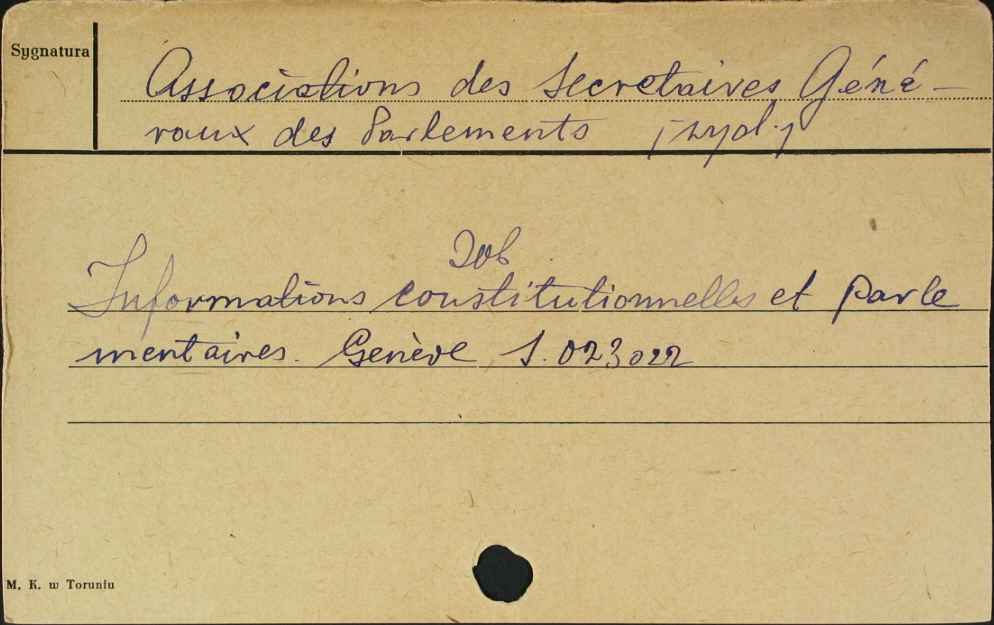 Sygnatura
Associations des Secretaires Géné-
raux des Parlements [wyd.]
Dob
Informations constitutionnelles et Parle
mentaires. Genève S. 023022
M. K. w Toruniu